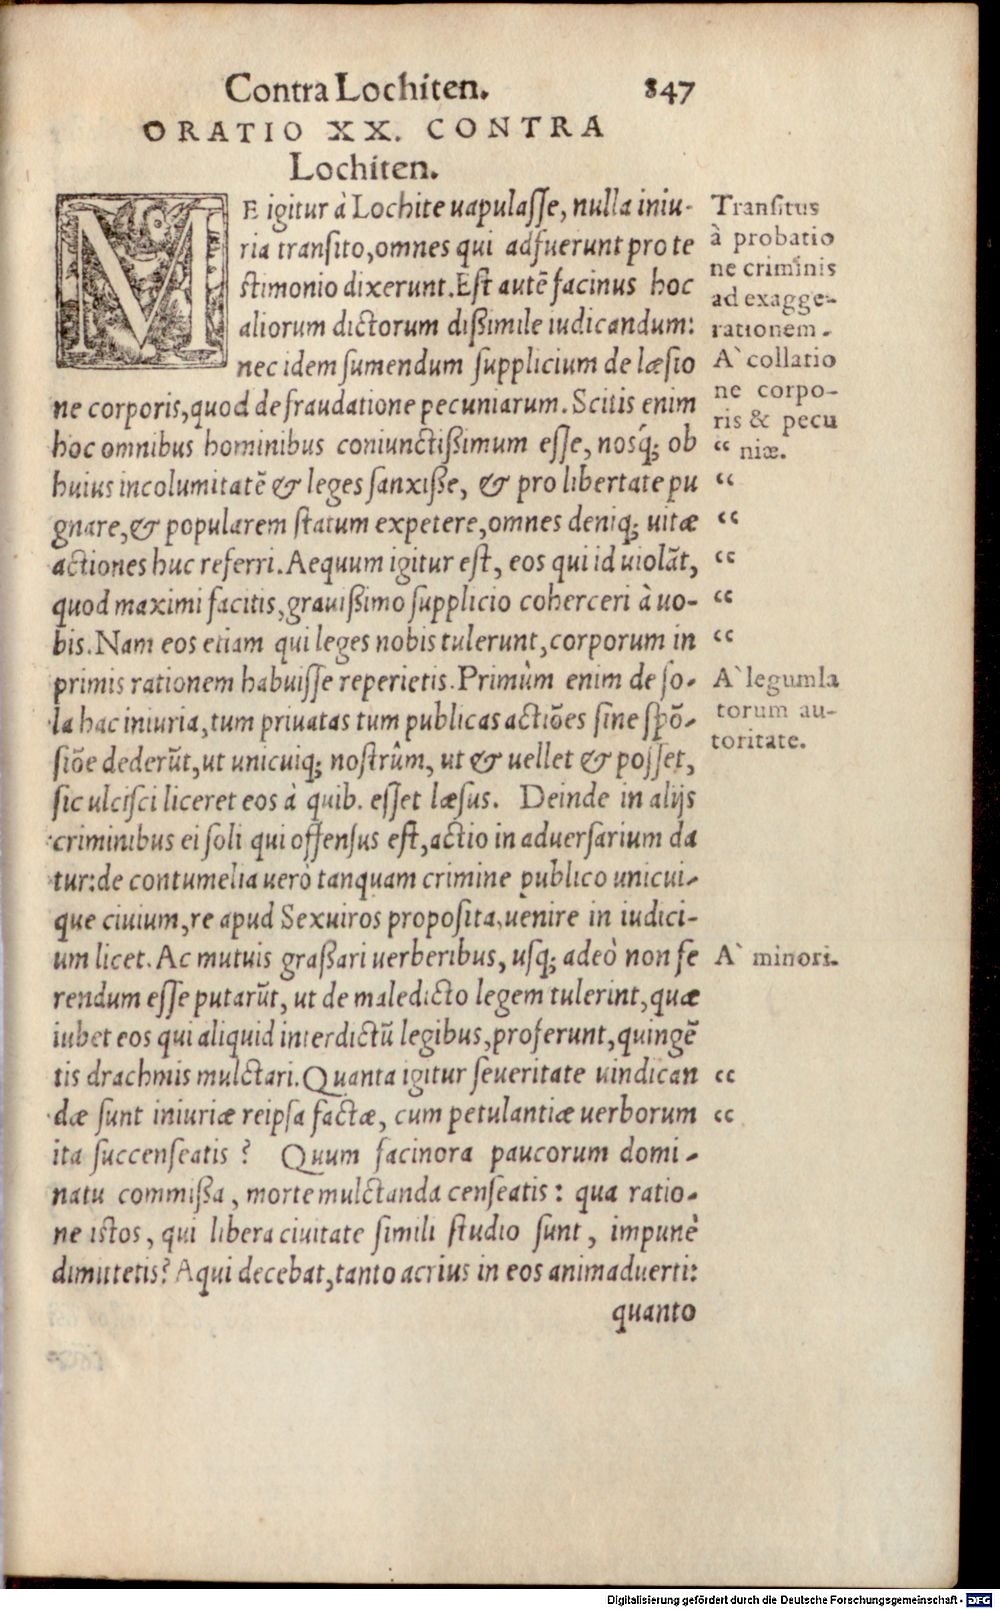 Contra Lochiten. 847
ORATIO XX. CONTRA
Lochiten.
ME igitur à Lochite uapulasse, nulla iniu-
ria transito, omnes qui adfuerunt pro te
stimonio dixerunt. Est autē facinus hoc
aliorum dictorum dißimile iudicandum:
nec idem sumendum supplicium de læsio
ne corporis, quod de fraudatione pecuniarum. Scitis enim
hoc omnibus hominibus coniunctißimum esse, nosq́; ob
huius incolumitatē & leges sanxisse, & pro libertate pu
gnare, & popularem statum expetere, omnes deniq; uitæ
actiones huc referri. Aequum igitur est, eos qui id uiolāt,
quod maximi facitis, grauißimo supplicio coherceri à uo-
bis. Nam eos etiam qui leges nobis tulerunt, corporum in
primis rationem habuisse reperietis. Primùm enim de so-
la hac iniuria, tum priuatas tum publicas actiōes sine spō-
siōe dederūt, ut unicuiq; nostrûm, ut & uellet & posset,
sic ulcisci liceret eos à quib. esset læsus. Deinde in alijs
criminibus ei soli qui offensus est, actio in aduersarium da
tur: de contumelia uerò tanquam crimine publico unicui-
que ciuium, re apud Sexuiros proposita, uenire in iudici-
um licet. Ac mutuis graßari uerberibus, usq; adeò non fe
rendum esse putarūt, ut de maledicto legem tulerint, quæ
iubet eos qui aliquid interdictū legibus, proferunt, quingē
tis drachmis mulctari. Quanta igitur seueritate uindican
dæ sunt iniuriæ reipsa factæ, cum petulantiæ uerborum
ita succenseatis? Quum facinora paucorum domi-
natu commißa, morte mulctanda censeatis: qua ratio-
ne istos, qui libera ciuitate simili studio sunt, impunè
dimittetis? Aqui decebat, tanto acrius in eos animaduerti:
quanto
Transitus
à probatio
ne criminis
ad exagge-
rationem.
A` collatio
ne corpo-
ris & pecu
“ niæ.
“
“
“
“
“
A` legumla
torum au-
toritate.
A` minori.
“
“
Digitalisierung gefördert durch die Deutsche Forschungsgemeinschaft - DFG